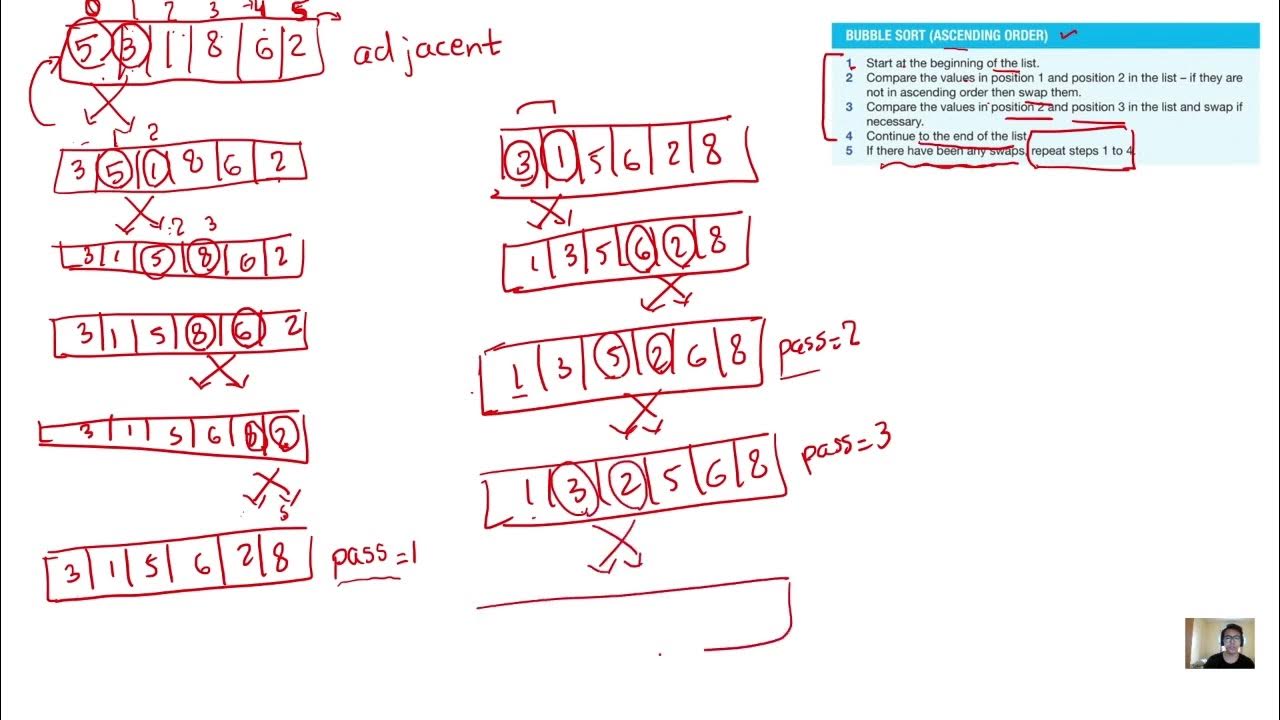 0 1 2 3 4 5
5 3 1 8 6 2
adjacent
2
3 5 1 8 6 2
2 3
3 1 5 8 6 2
3 1 5 8 6 2
3 1 5 6 8 2
5
3 1 5 6 2 8
pass=1
3 1 5 6 2 8
1 3 5 6 2 8
1 3 5 2 6 8
pass=2
1 3 2 5 6 8
pass=3
BUBBLE SORT (ASCENDING ORDER)
1 Start at the beginning of the list.
2 Compare the values in position 1 and position 2 in the list – if they are
not in ascending order then swap them.
3 Compare the values in position 2 and position 3 in the list and swap if
necessary.
4 Continue to the end of the list.
5 If there have been any swaps, repeat steps 1 to 4.